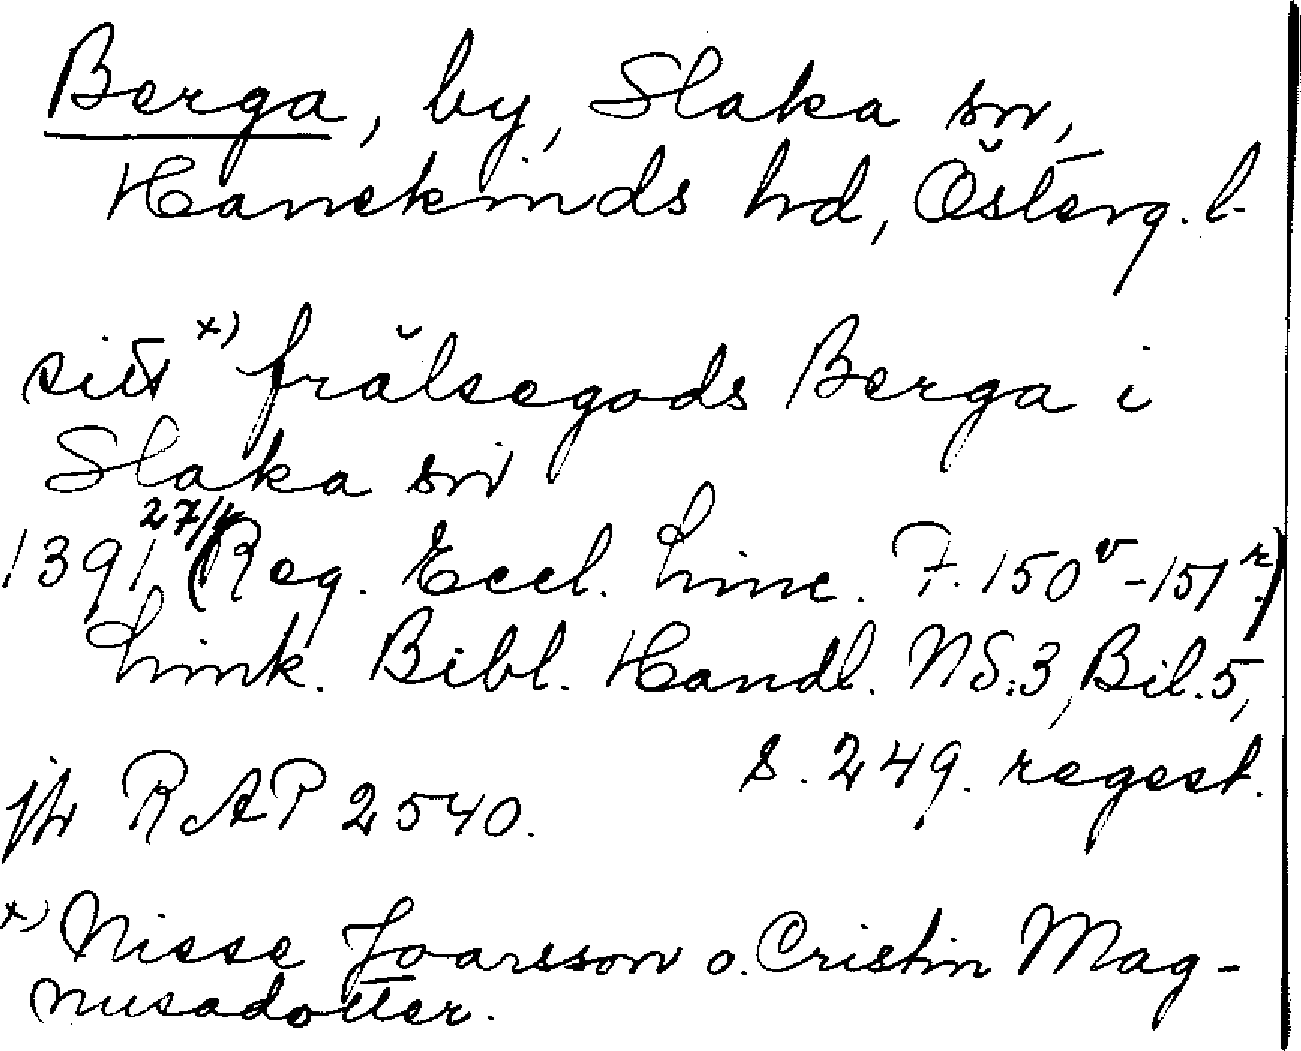 Berga, by, Slaka sn,
Hanekinds hd, Österg. l.
sitt x) frälsegods Berga i
Slaka sn
1391 27/4 (Reg. Eccl. Linc. F. 150v-151r)
Link. Bibl. Handl. NS:3, Bil. 5,
s. 249. regest.
jfr RAP 2540.
x) Nisse Joarsson o. Cristin Mag-
nusadotter.